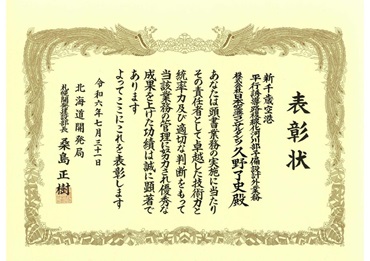 表彰状
新千歳空港
平行誘導路複線化河川切替予備設計外業務
久野了史殿
あなたは頭書業務の実施に当たり
その責任者として卓越した技術力と
統率力及び適切な判断をもって
当該業務の管理に努力され優秀な
成果を上げた功績は誠に顕著で
あります
よってここにこれを表彰します
令和六年七月三十一日
北海道開発局
札幌開発建設部長 桑島正樹